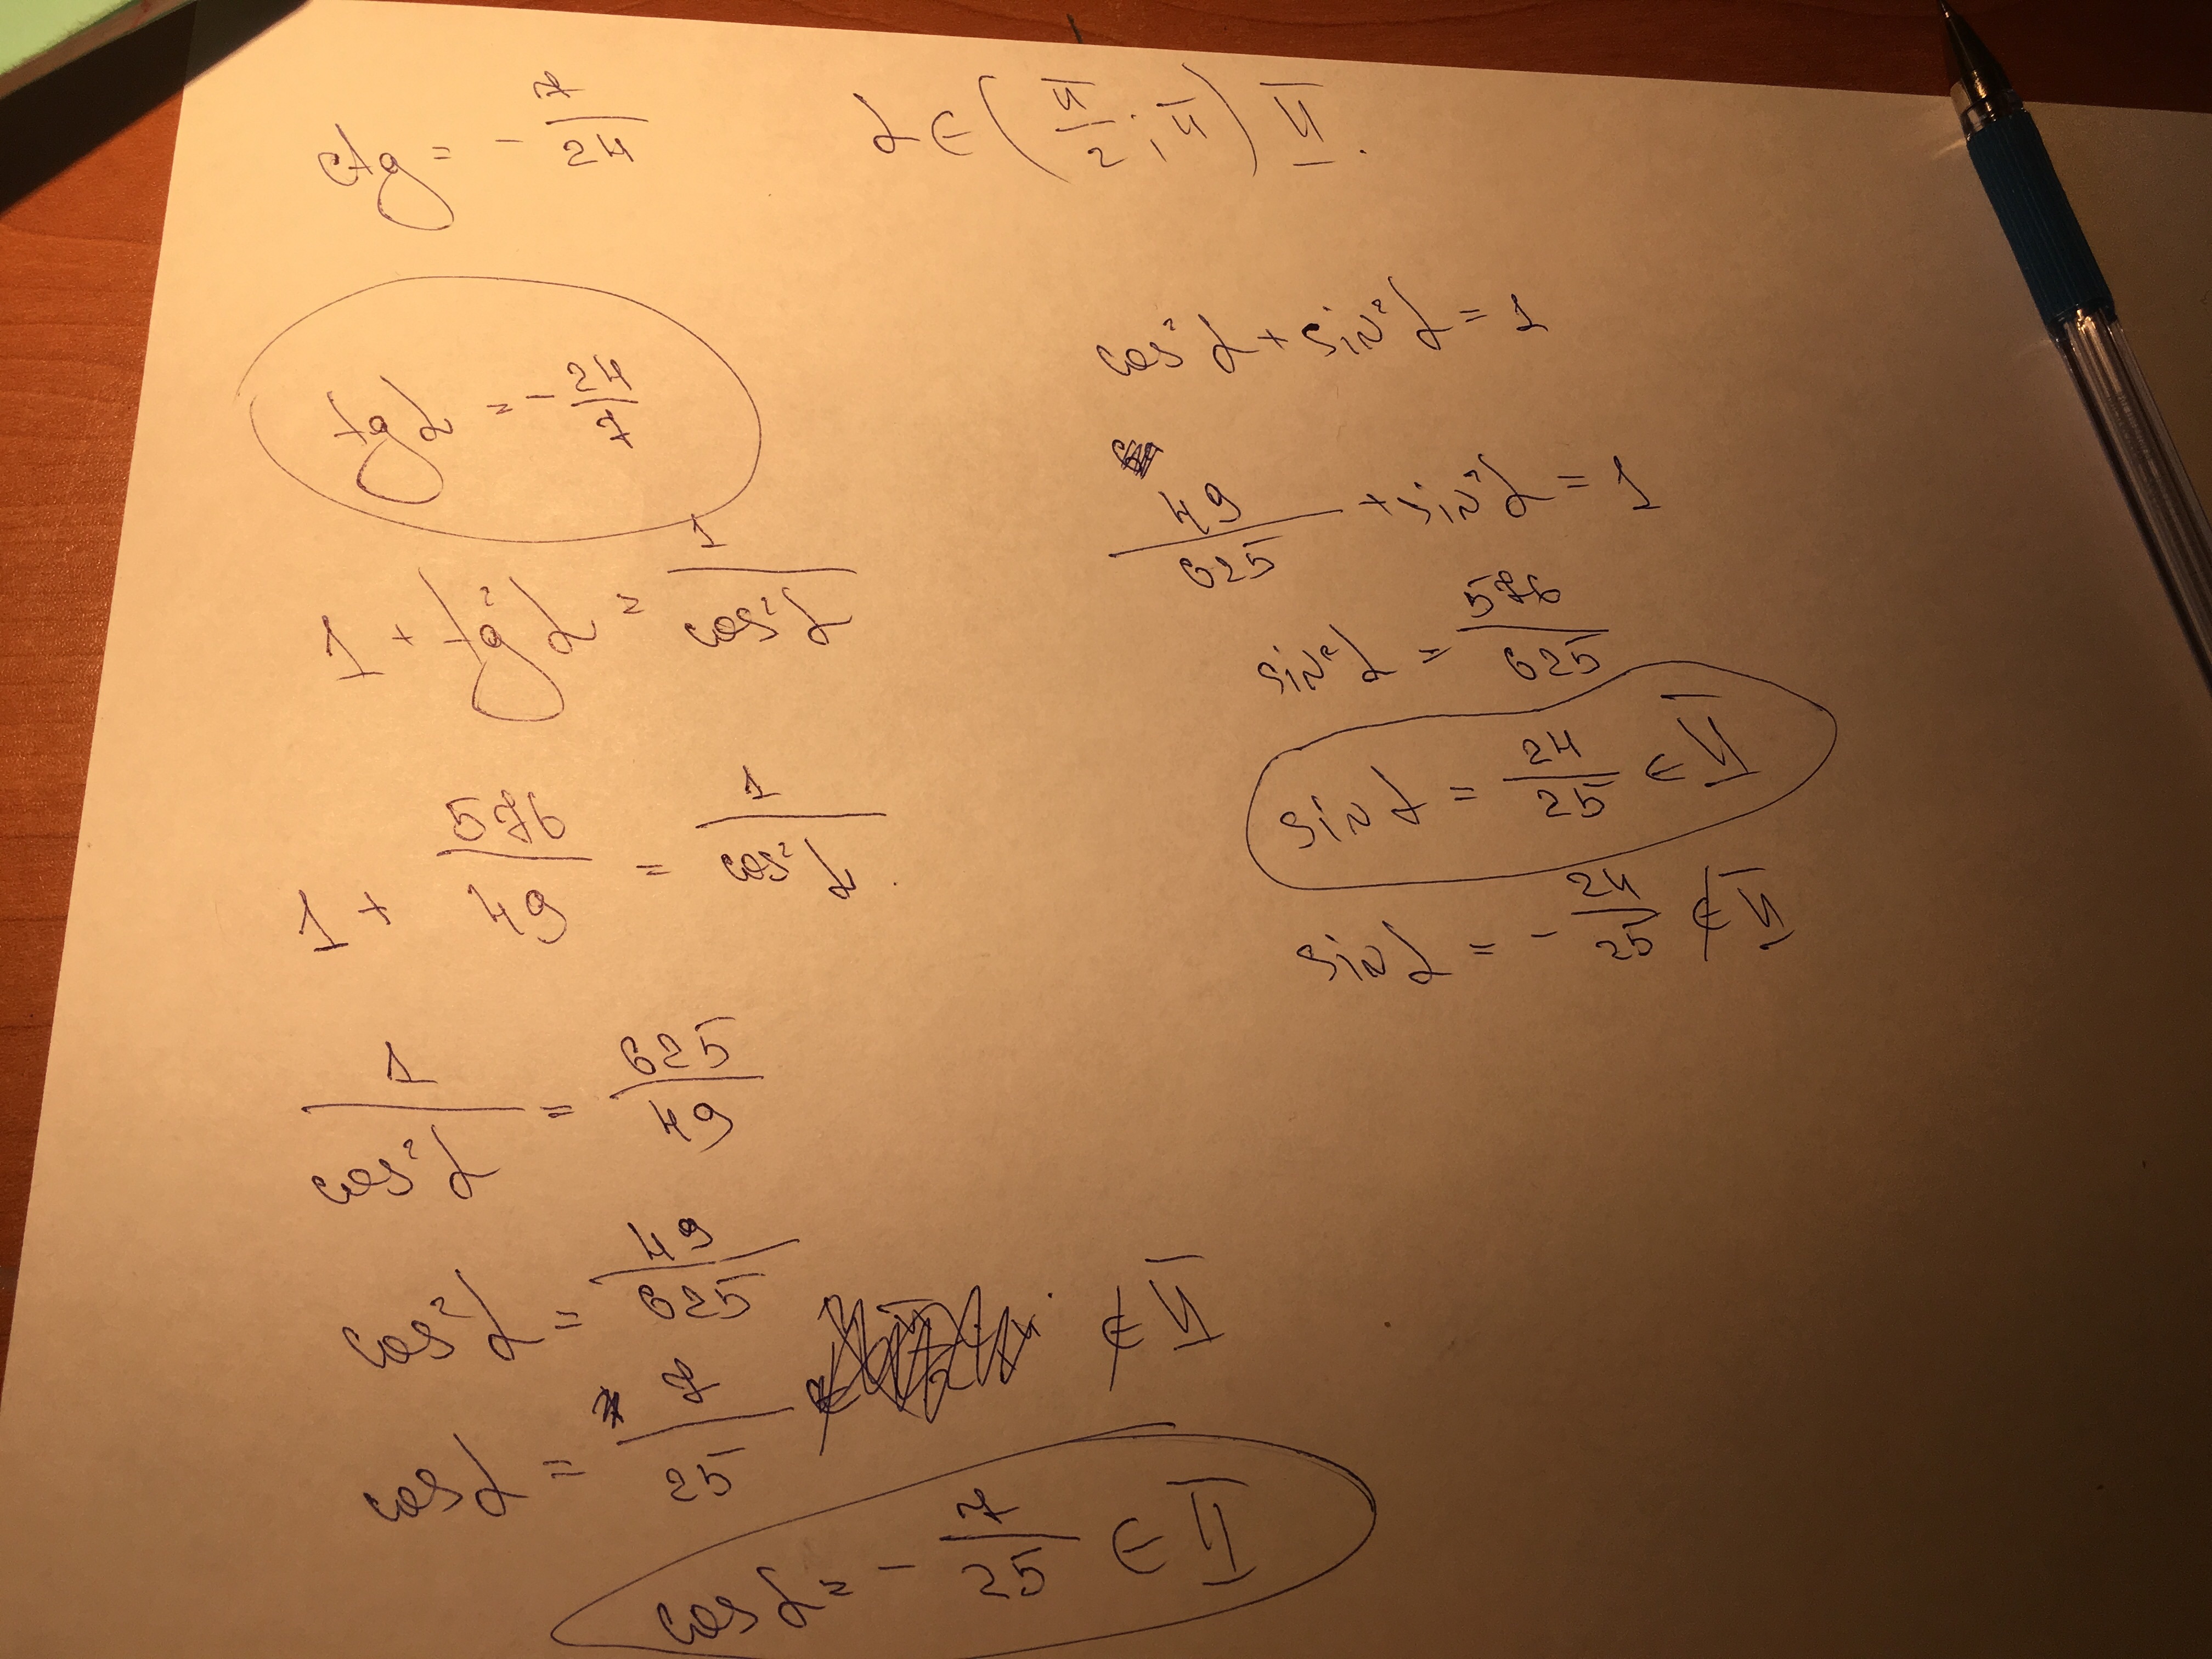 ctg = - 7/24    α ∈ (π/2; π) II.
tg α = - 24/7
1 + tg² α = 1/cos² α
1 + 576/49 = 1/cos² α
1/cos² α = 625/49
cos² α = 49/625
cos α = 7/25 ∉ II
cos α = - 7/25 ∈ II
cos² α + sin² α = 1
49/625 + sin² α = 1
sin² α = 576/625
sin α = 24/25 ∈ II
sin α = - 24/25 ∉ II